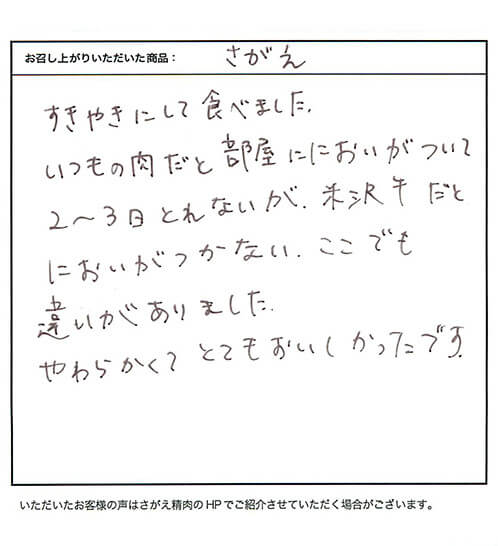 お召し上がりいただいた商品： さがえ
すきやきにして食べました.
いつもの肉だと部屋ににおいがついて
2〜3日とれないが. 米沢牛だと
においがつかない. ここでも
違いがありました.
やわらかくてとてもおいしかったです.
いただいたお客様の声はさがえ精肉のHPでご紹介させていただく場合がございます。